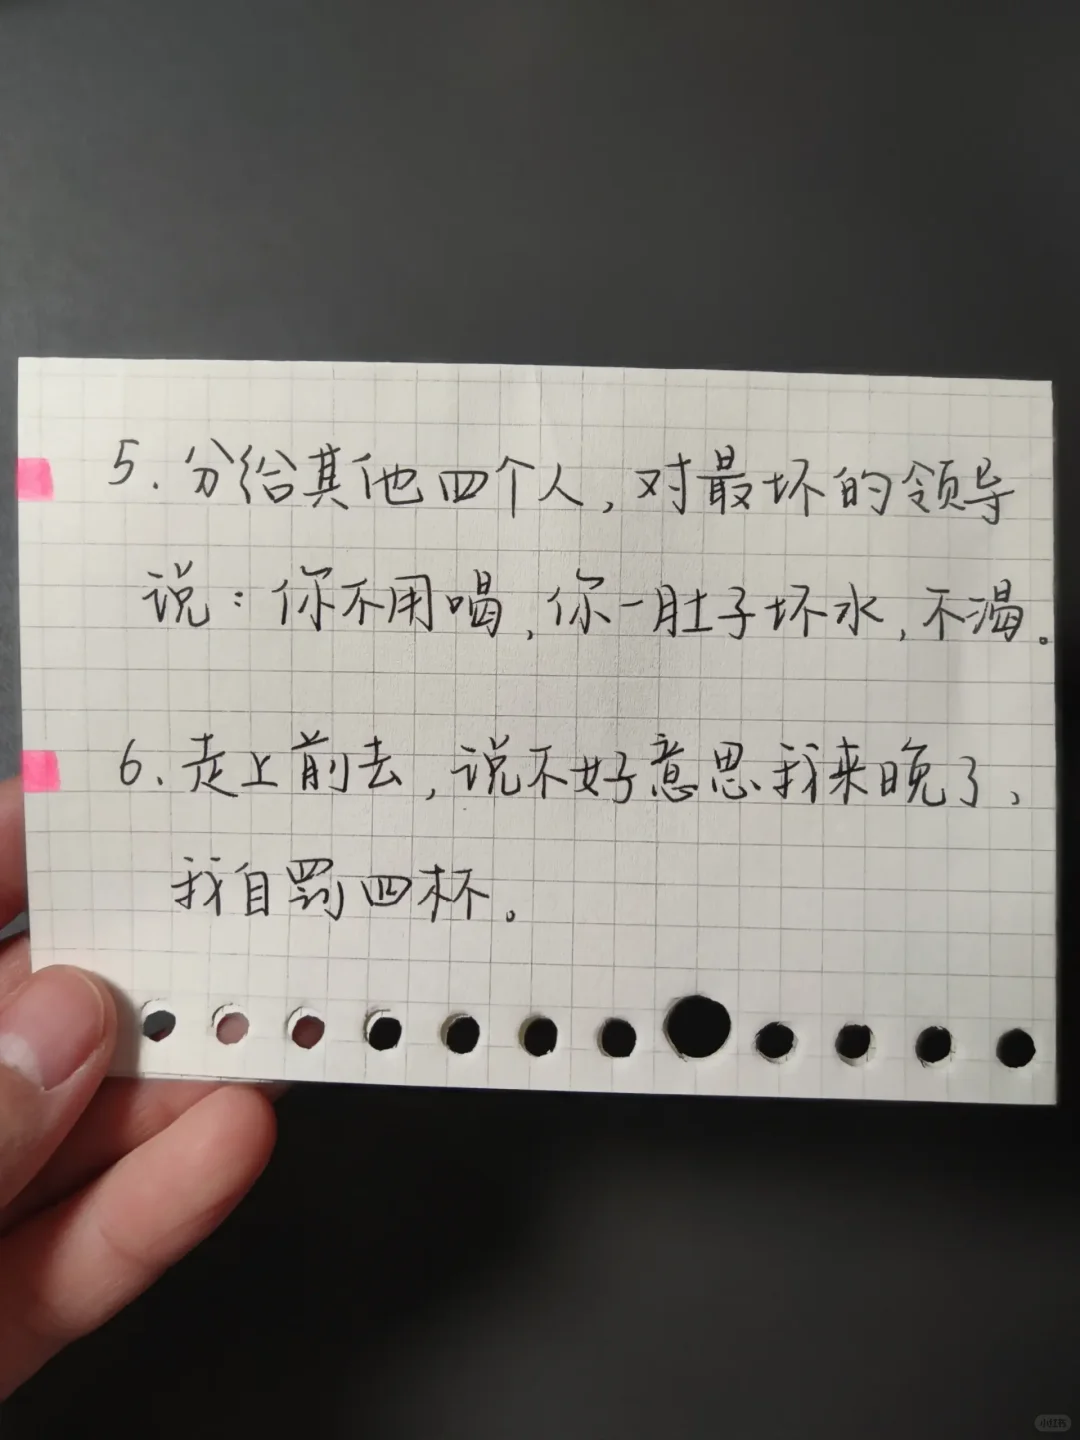 5. 分给其他四个人, 对最坏的领导
说: 你不用喝, 你一肚子坏水, 不渴。
6. 走上前去, 说不好意思我来晚了,
我自罚四杯。
小红书